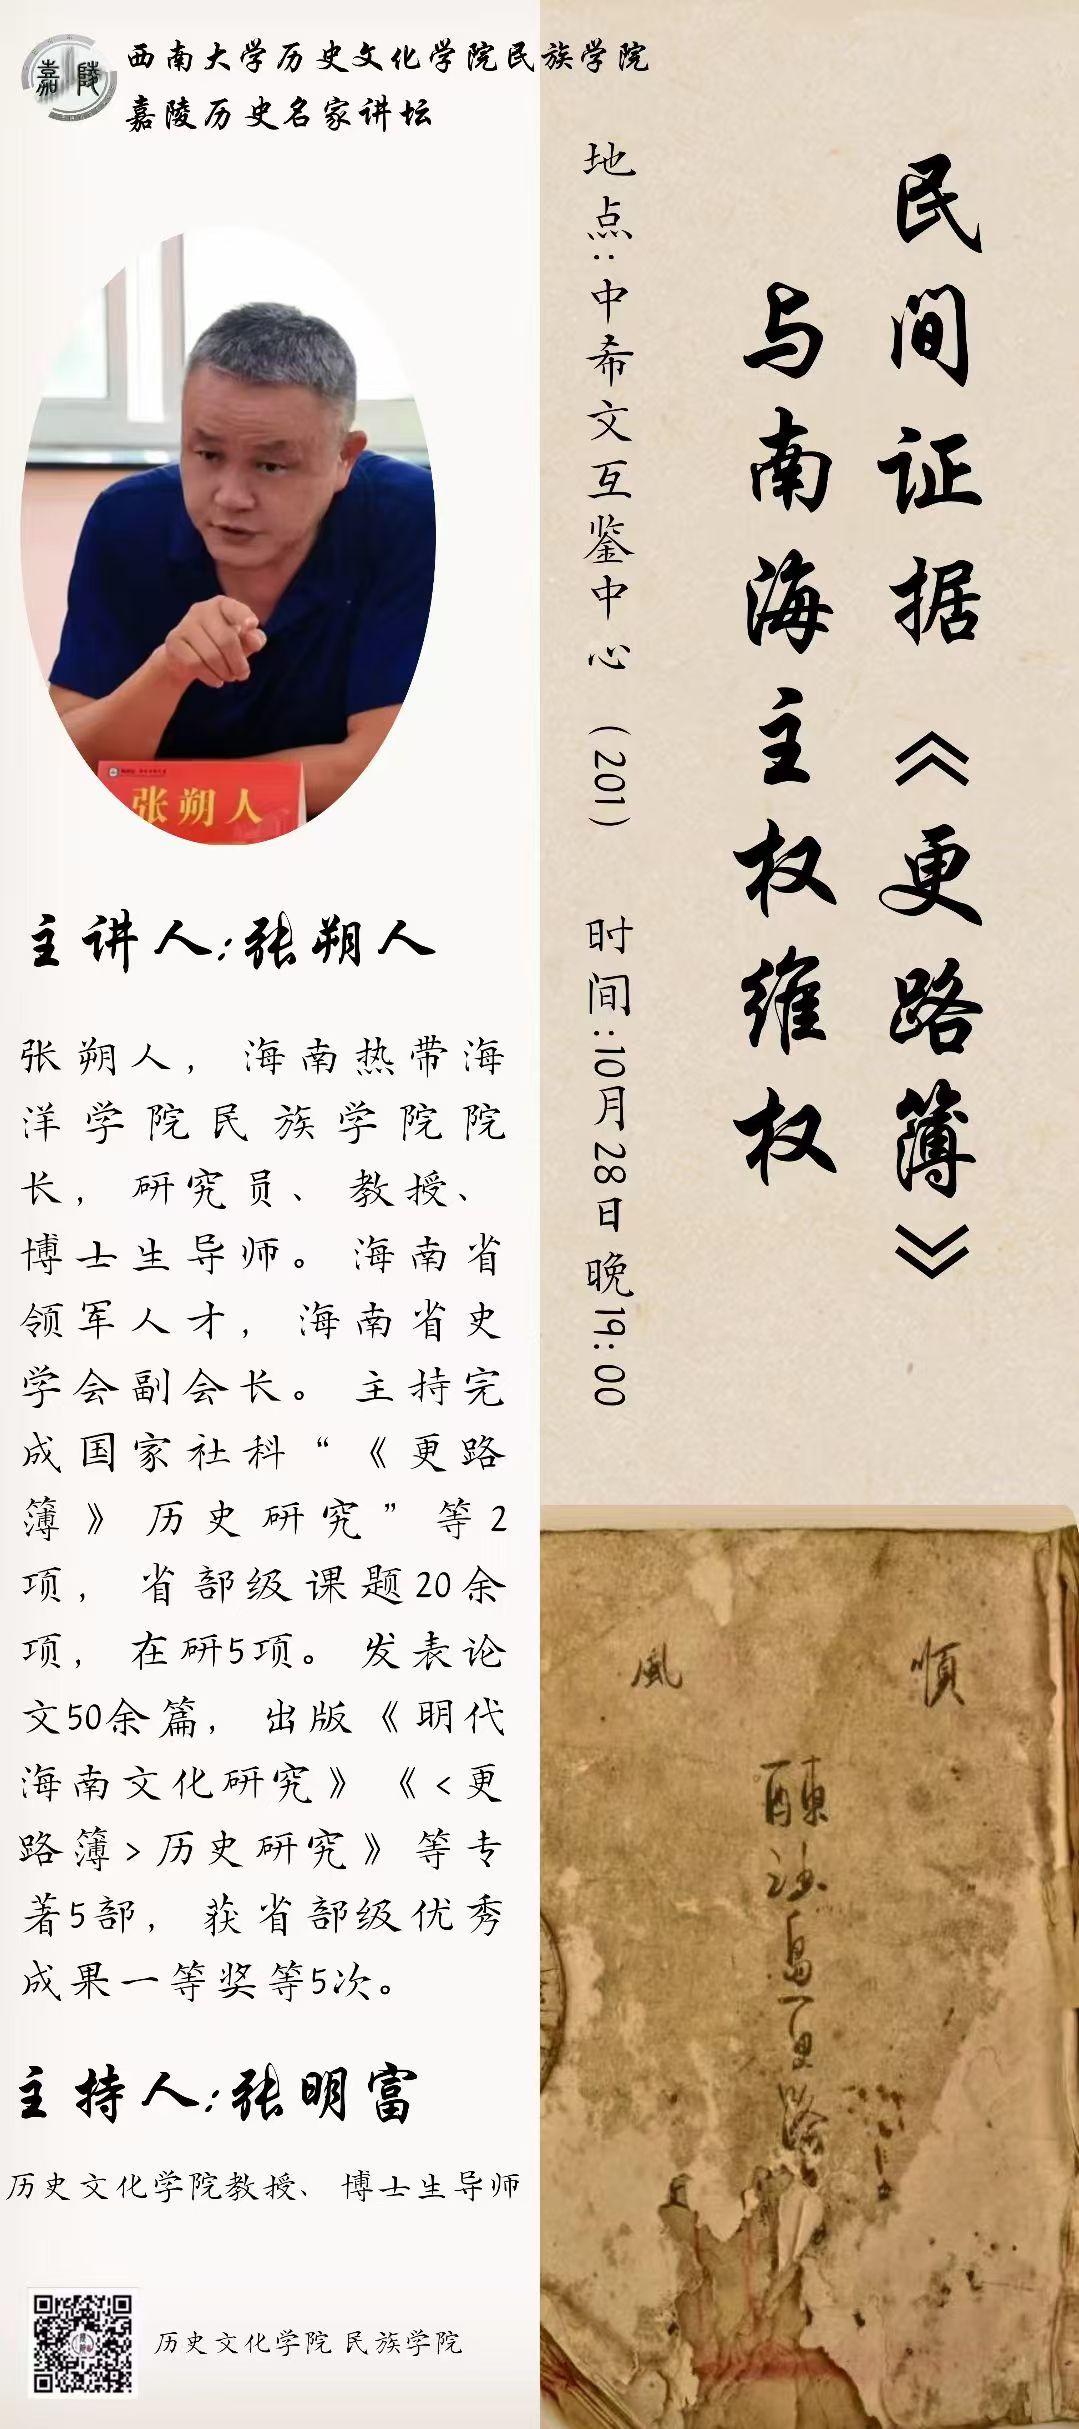 嘉陵
西南大学历史文化学院民族学院
嘉陵历史名家讲坛
张朔人
主讲人:张朔人
张朔人，海南热带海
洋学院民族学院院
长，研究员、教授、
博士生导师。海南省
领军人才，海南省史
学会副会长。主持完
成国家社科“《更路
簿》历史研究”等2
项，省部级课题20余
项，在研5项。发表论
文50余篇，出版《明代
海南文化研究》《<更
路簿>历史研究》等专
著5部，获省部级优秀
成果一等奖等5次。
主持人:张明富
历史文化学院教授、博士生导师
历史文化学院 民族学院
民间证据《更路簿》
与南海主权维权
地点:中希文互鉴中心（201） 时间:10月28日晚19:00
順
風